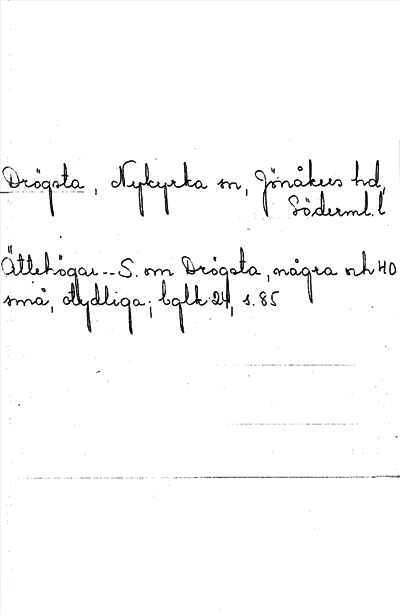 Drögsta, Nykyrka sn, Jönåkers hd,
Söderml. l
Ättehögar -- S. om Drögsta, några och 40
små, otydliga; bglk 24, s. 85